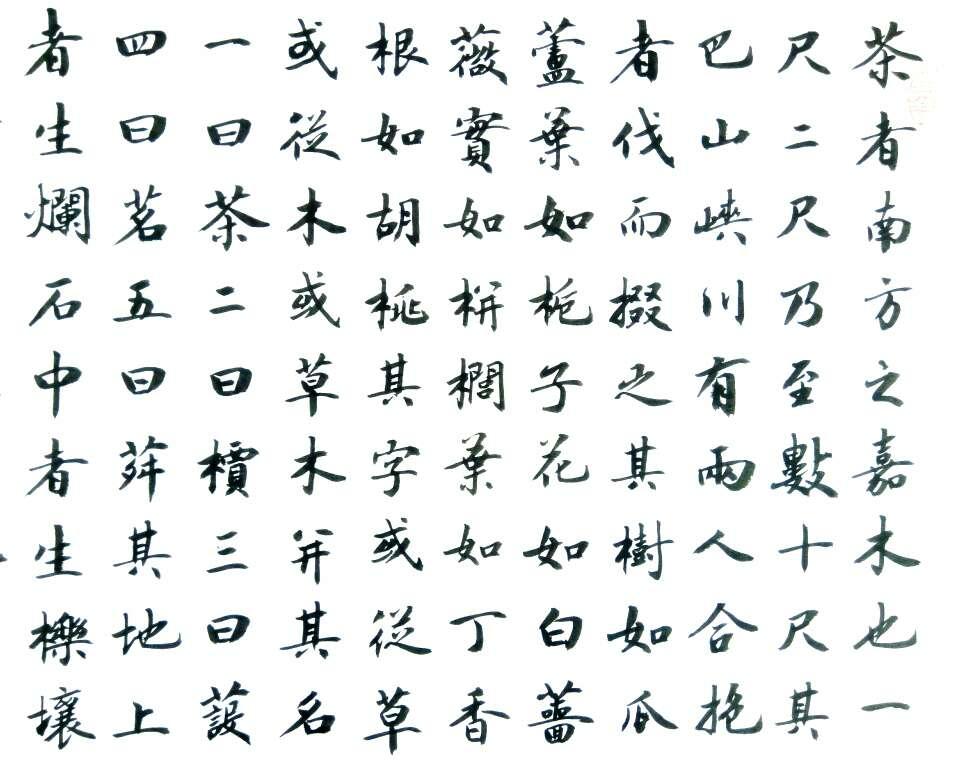 茶者南方之嘉木也一
尺二尺乃至數十尺其
巴山峽川有兩人合抱
者伐而掇之其樹如瓜
蘆葉如梔子花如白薔
薇實如栟櫚葉如丁香
根如胡桃其字或從草
或從木或草木并其名
一曰茶二曰檟三曰蔎
四曰茗五曰荈其地上
者生爛石中者生櫟壤